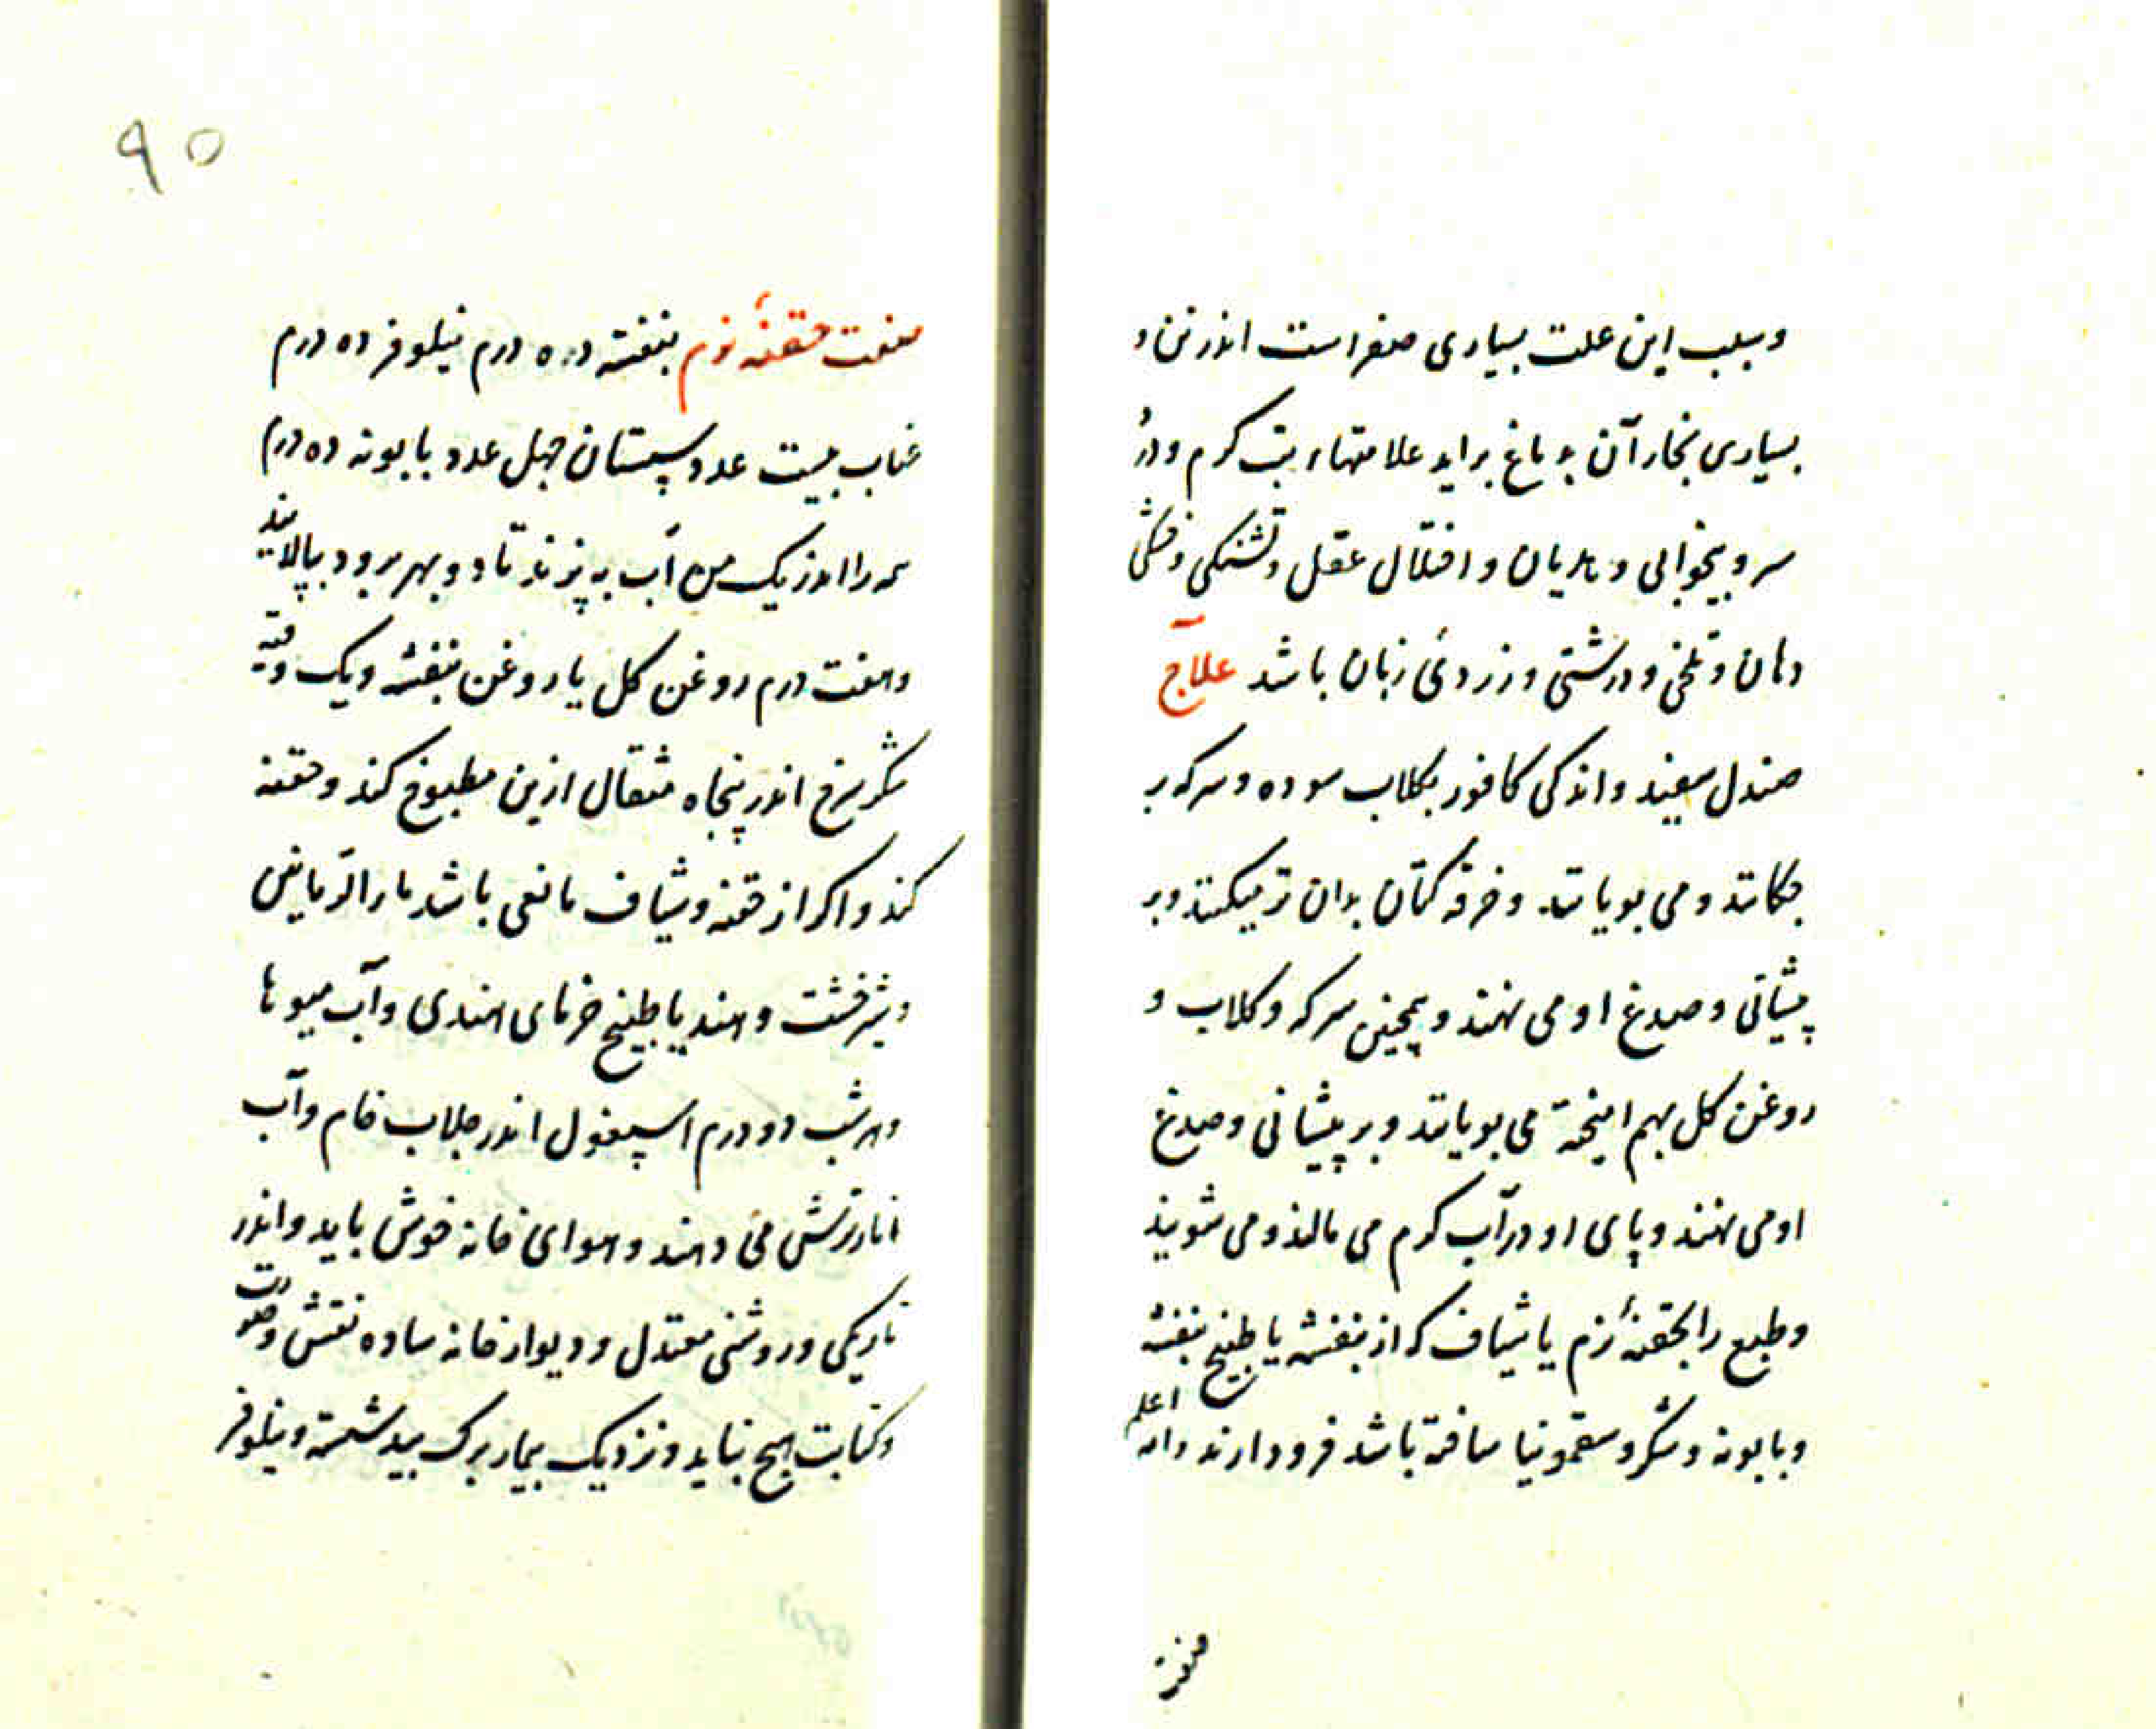 وسبب این علت بسیاری صفراست اندر تن و
بسیاری بخار آن بدماغ براید علامتها تب گرم و درد
سر و بیخوابی و هذیان و اختلال عقل و تشنگی و خشکی
دهان و تلخی و درشتی و زردئ زبان باشد علاج
صندل سفید و اندکی کافور بگلاب سوده و سرکه بر
چکانند و می بویانند و خرقه کتان بدان تر میکنند و بر
پیشانی و صدغ او می نهند و همچنین سرکه و گلاب و
روغن گل بهم امیخته می بویانند و بر پیشانی و صدغ
او می نهند و پای او در آب گرم می مالند و می شویند
و طبع را بحقنهٔ نرم یا شیاف که از بنفشه یا طبیخ بنفشه
و بابونه و شکر و سقمونیا ساخته باشد فرود ارند والله اعلم
صفت
۹۰
صفت حقنهٔ نرم بنفشه ده درم نیلوفر ده درم
عناب بیست عدد سپستان چهل عدد بابونه ده درم
همه را اندر یک من آب به پزند تا دو بهر برود بپالایند
و هفت درم روغن گل یا روغن بنفشه و یک وقیه
شکر سرخ اندر پنجاه مثقال ازین مطبوخ کند و حقنه
کند و اکر از حقنه و شیاف مانعی باشد مار الرمانین
و شیرخشت دهند یا طبیخ خرمای هندی و آب میوها
و هر شب دو درم اسپغول اندر جلاب خام و آب
انار ترش می دهند و هوای خانه خوش باید و اندر
تاریکی و روشنی معتدل و دیوار خانه ساده نقش و صورت
و کتابت هیچ نباید و نزدیک بیمار برک بید شسته و نیلوفر